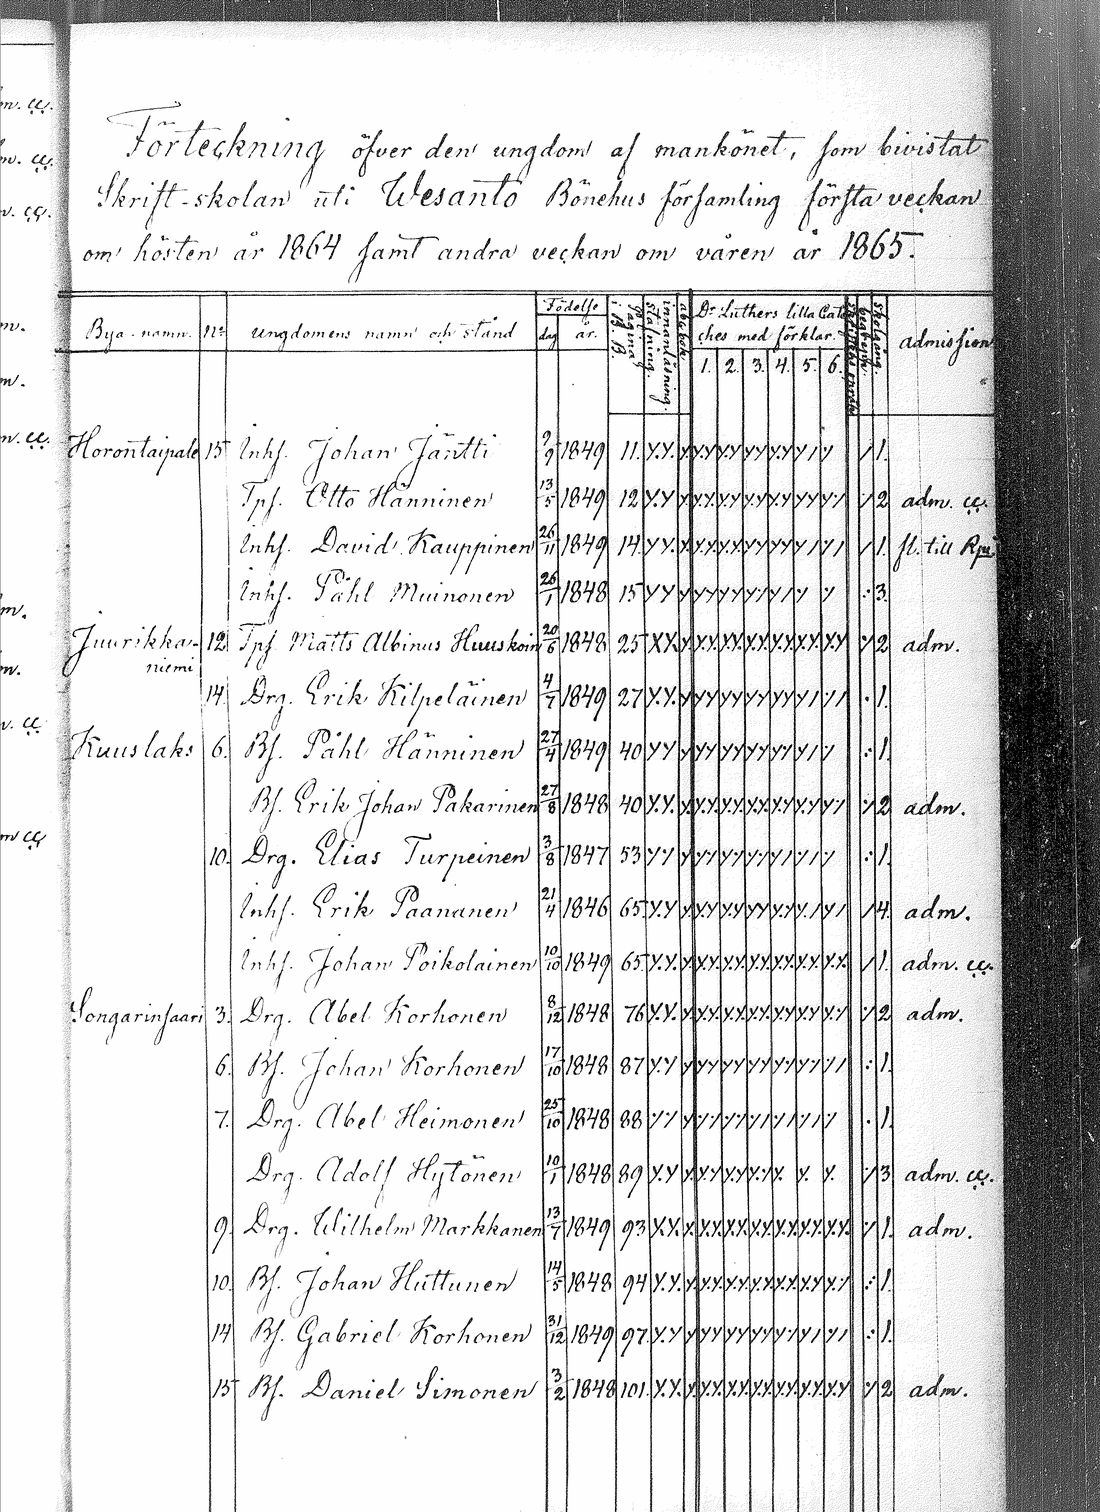 Förteckning öfver den ungdom af mankönet, som bivistat
Skrift-skolan uti Wesanto Bönehus församling första veckan
om hösten år 1864 samt andra veckan om våren år 1865.
Bya-namn. No Ungdomens namn och stånd Födelse dag år. pagina i B.B. innanläsning. stafning. abc bok. Dr Luthers lilla Cateches med förklar. 1. 2. 3. 4. 5. 6. skolgång. admission
Horontaipale 15 Inhs. Johan Jäntti 9/9 1849 11. 1.
Tps. Otto Hänninen 13/5 1849 12 2 adm. cc.
Inhs. David Kauppinen 26/11 1849 14 1. fl. till Rpu
Inhs. Påhl Muinonen 26/1 1848 15 3.
Juurikka-
niemi 12 Tps. Matts Albinus Huuskoin 20/6 1848 25 2 adm.
14. Drg. Erik Kilpeläinen 4/7 1849 27 1.
Kuuslaks 6. Bs. Påhl Hänninen 27/4 1849 40 1.
Bs. Erik Johan Pakarinen 27/8 1848 40 2 adm.
10. Drg. Elias Turpeinen 3/8 1847 53 1.
Inhs. Erik Paananen 21/4 1846 65 4. adm.
Inhs. Johan Poikolainen 10/10 1849 65 1. adm. cc.
Songarinsaari 3. Drg. Abel Korhonen 8/12 1848 76 2 adm.
6. Bs. Johan Korhonen 17/10 1848 87 1.
7. Drg. Abel Heimonen 25/10 1848 88 1.
Drg. Adolf Hytönen 10/1 1848 89 3 adm. cc.
9. Drg. Wilhelm Markkanen 13/7 1849 93 1. adm.
10. Bs. Johan Huttunen 14/5 1848 94 1.
14 Bs. Gabriel Korhonen 31/12 1849 97 1.
15 Bs. Daniel Simonen 3/2 1848 101. 2 adm.